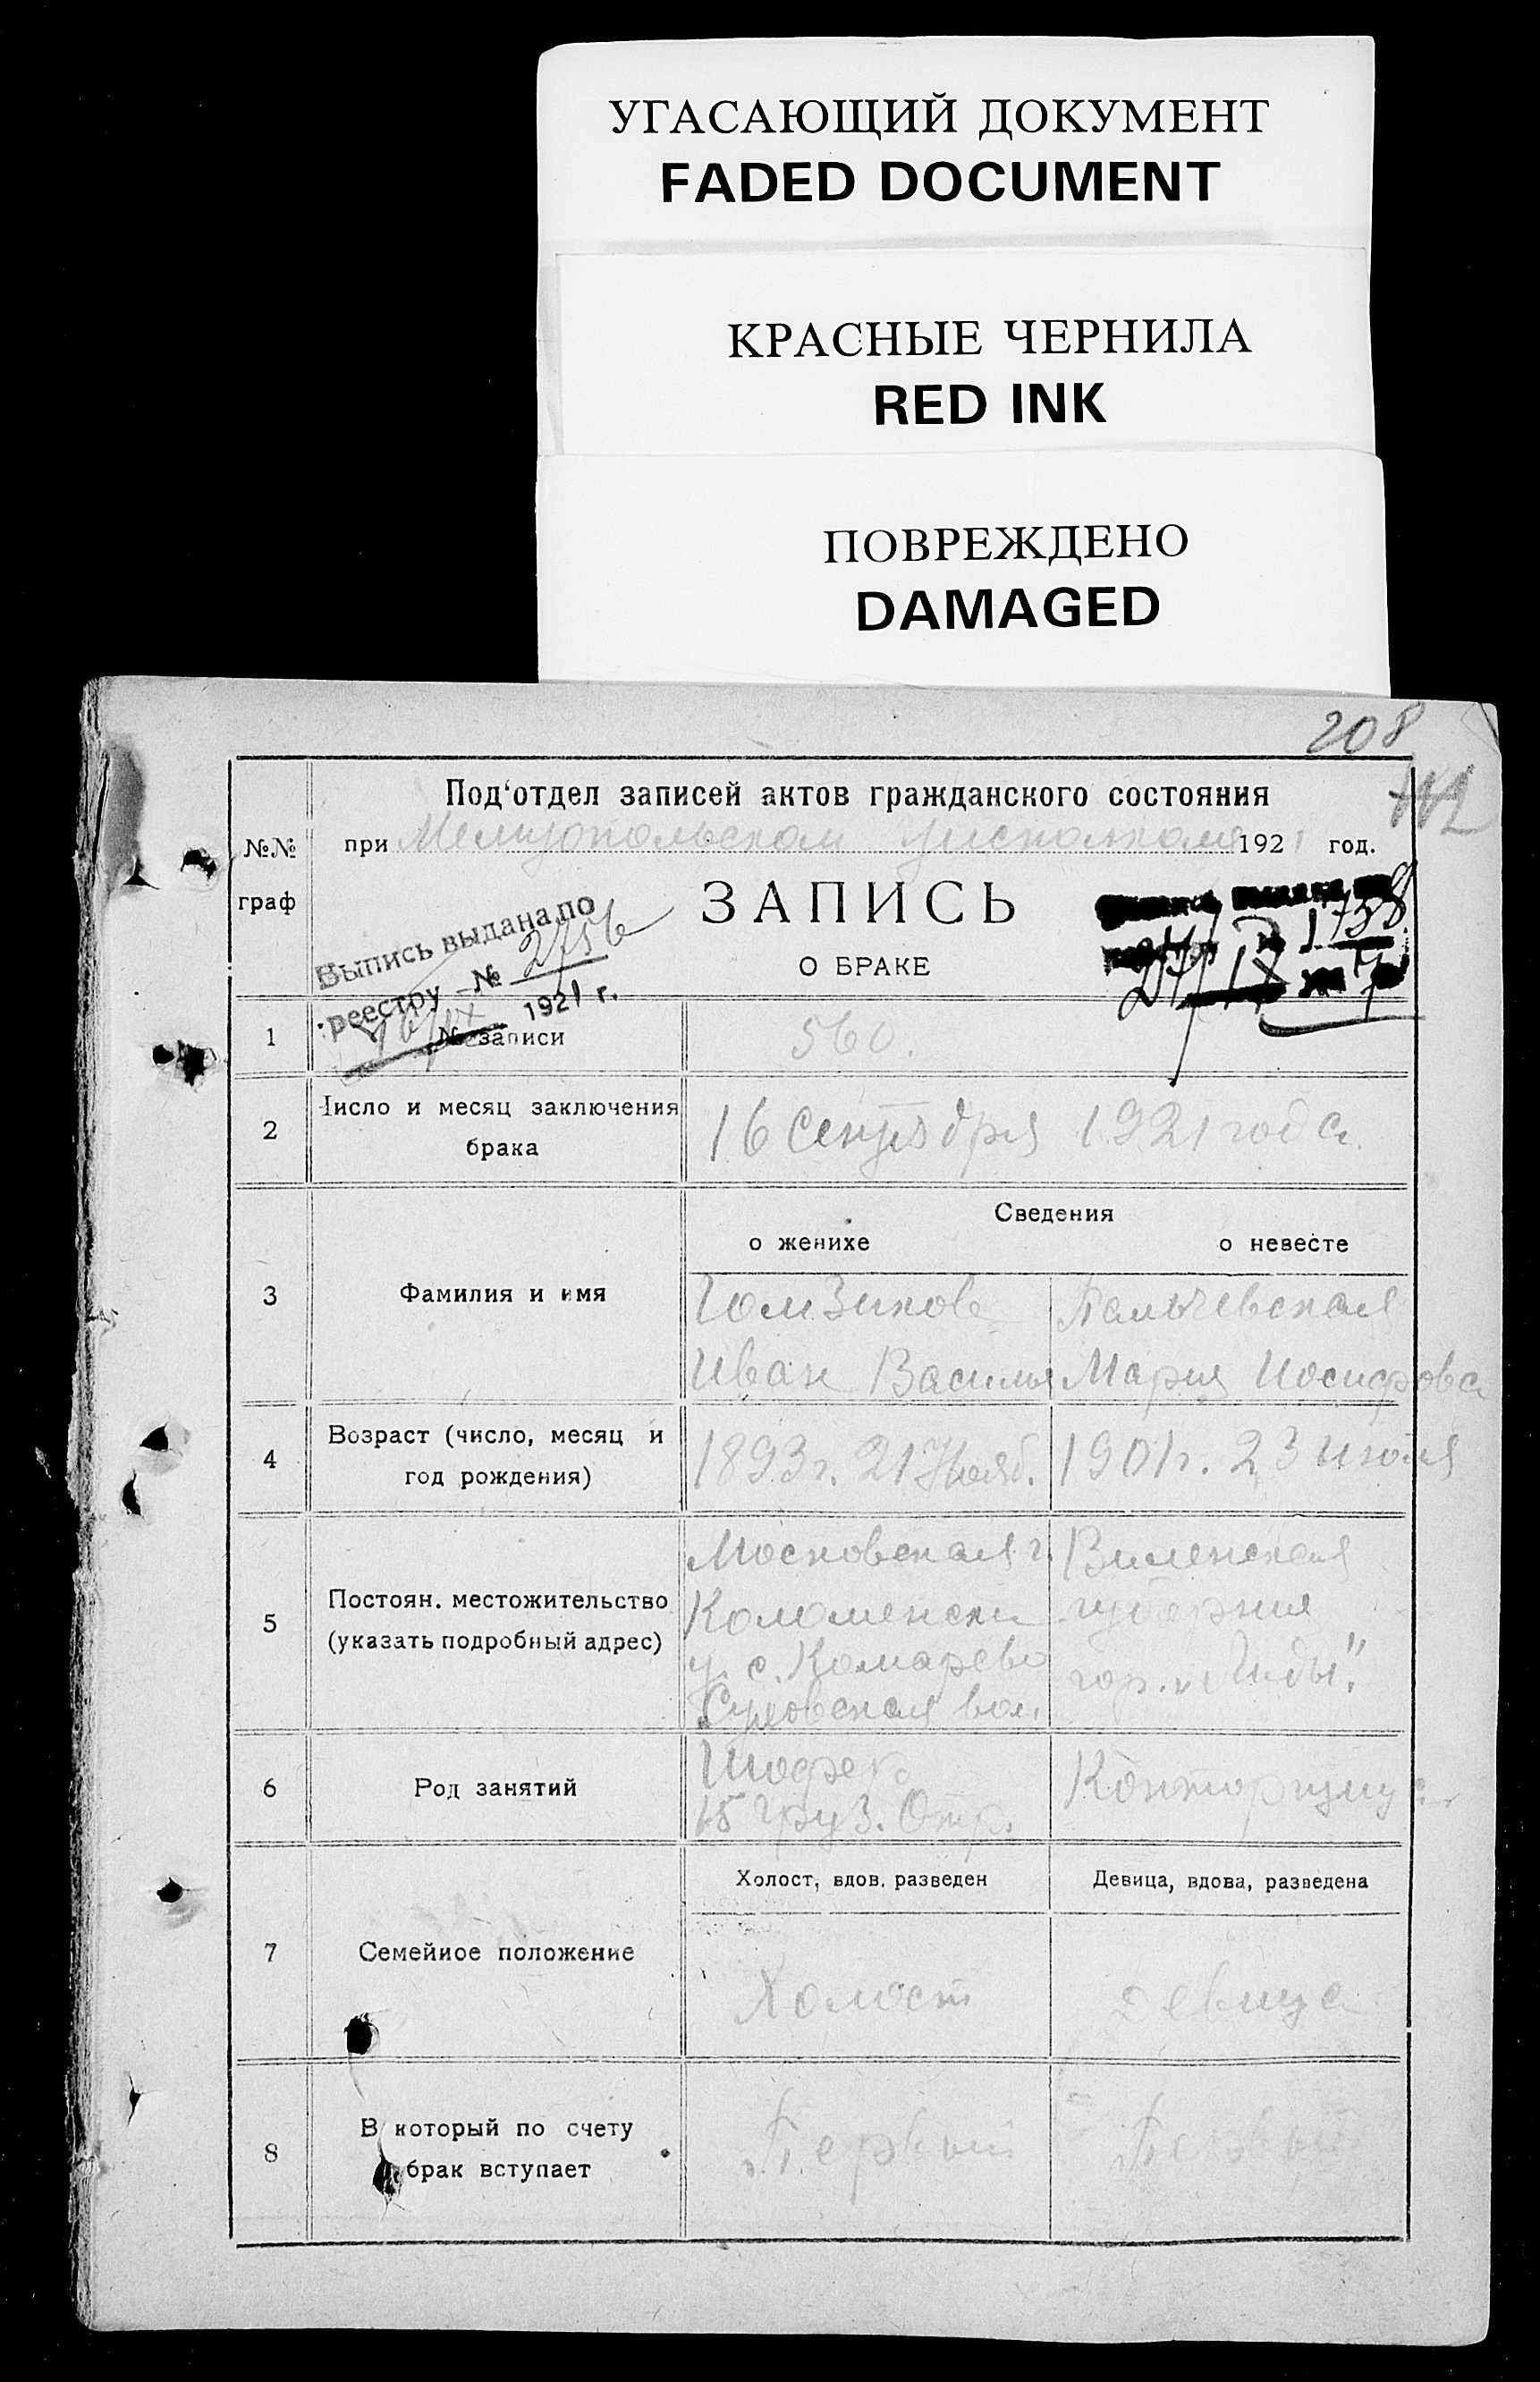 УГАСАЮЩИЙ ДОКУМЕНТ
FADED DOCUMENT
КРАСНЫЕ ЧЕРНИЛА
RED INK
ПОВРЕЖДЕНО
DAMAGED
208
Под'отдел записей актов гражданского состояния
№№ граф
при Мелитопольском уисполкоме 1921 год.
ЗАПИСЬ
О БРАКЕ
Выпись выдана по
реестру № 2756
16/IX 1921 г.
1738
27/IX
1 № записи 560.
2 Число и месяц заключения
брака
16 Сентября 1921 года.
Сведения
о женихе о невесте
3 Фамилия и имя
Гомзиков
Иван Василь
Мария Иосифова
4 Возраст (число, месяц и
год рождения)
1893 г. 21 Нояб. 1901 г. 23 июля
5 Постоян. местожительство
(указать подробный адрес)
Московская г.
Коломенски
у. с. Комарево
вол.
Виленская
губерния
гор. „Лиды".
6 Род занятий
Шофер
15 Груз. Отр.
Холост, вдов, разведен Девица, вдова, разведена
7 Семейное положение
Холост Девица
8 В который по счету
брак вступает
Первый Первый